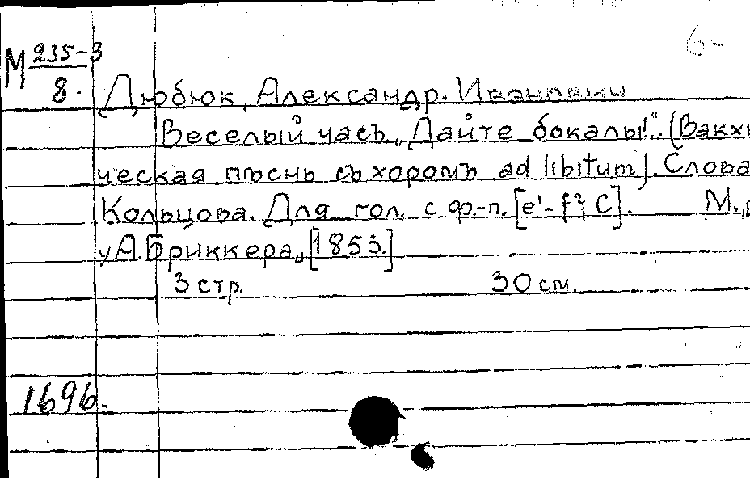 6-
М 235-3
8.
Дюбюк, Александр. Иванович
Веселый часъ „Дайте бокалы!". (Вакхи
ческая пѣснь съ хоромъ ad libitum). Слова
Кольцова. Для гол. с ф.-п. [e'-f² C]. М.,
у А. Бриккера„ [1853.]
3 стр. 30 см.
1696.